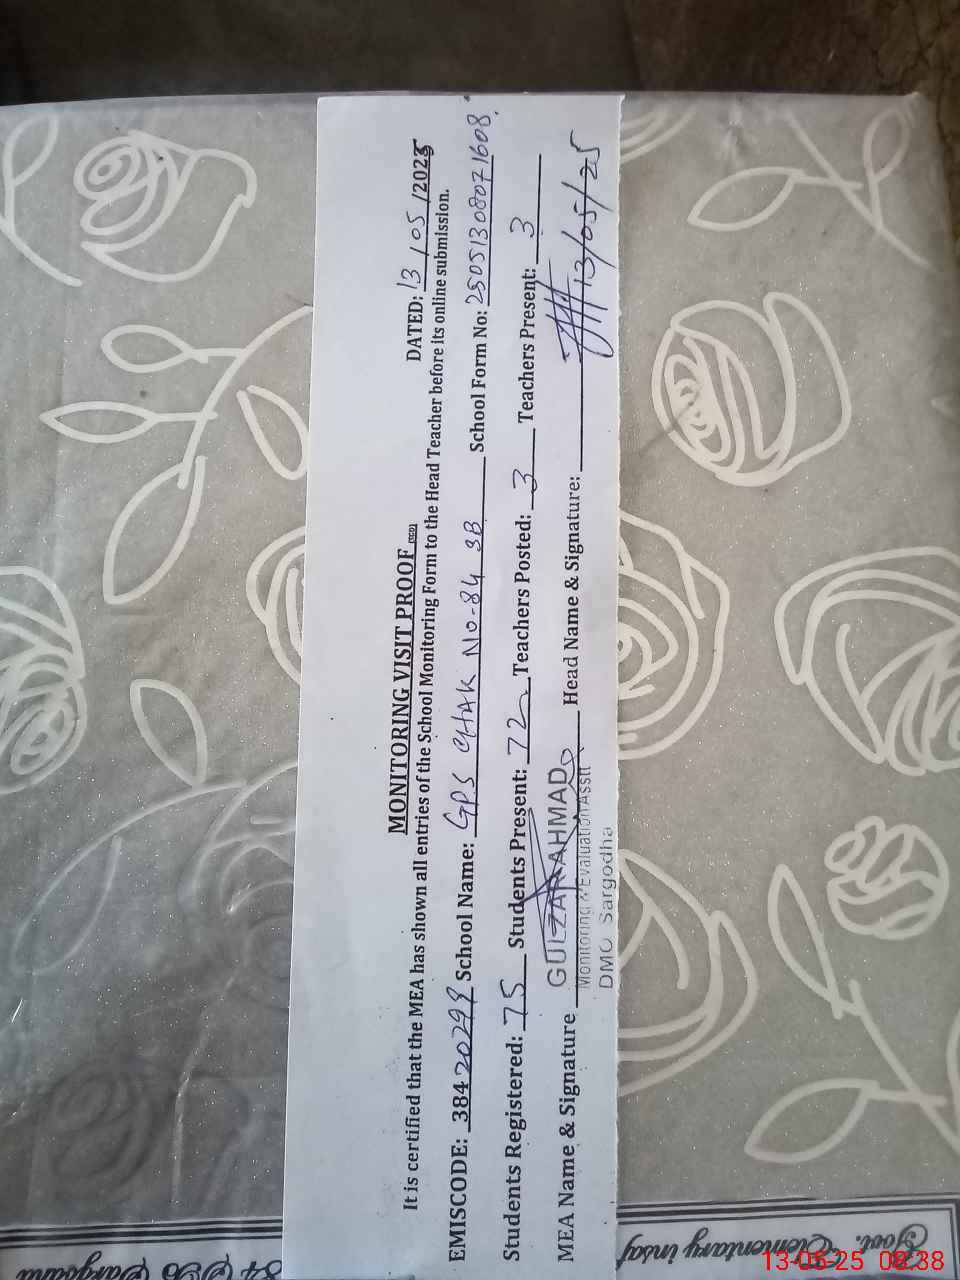 MONITORING VISIT PROOF
DATED: 13/05/2025
It is certified that the MEA has shown all entries of the School Monitoring Form to the Head Teacher before its online submission.
EMISCODE: 38420299 School Name: GPS CHAK NO-84 SB School Form No: 25051308071608
Students Registered: 75 Students Present: 72 Teachers Posted: 3 Teachers Present: 3
MEA Name & Signature GULZAR AHMAD Head Name & Signature: 13/05/25
Monitoring & Evaluation Asstt
DMO Sargodha
Govt. Elementary insaf
84 Sargodha
13-05-25 08:38